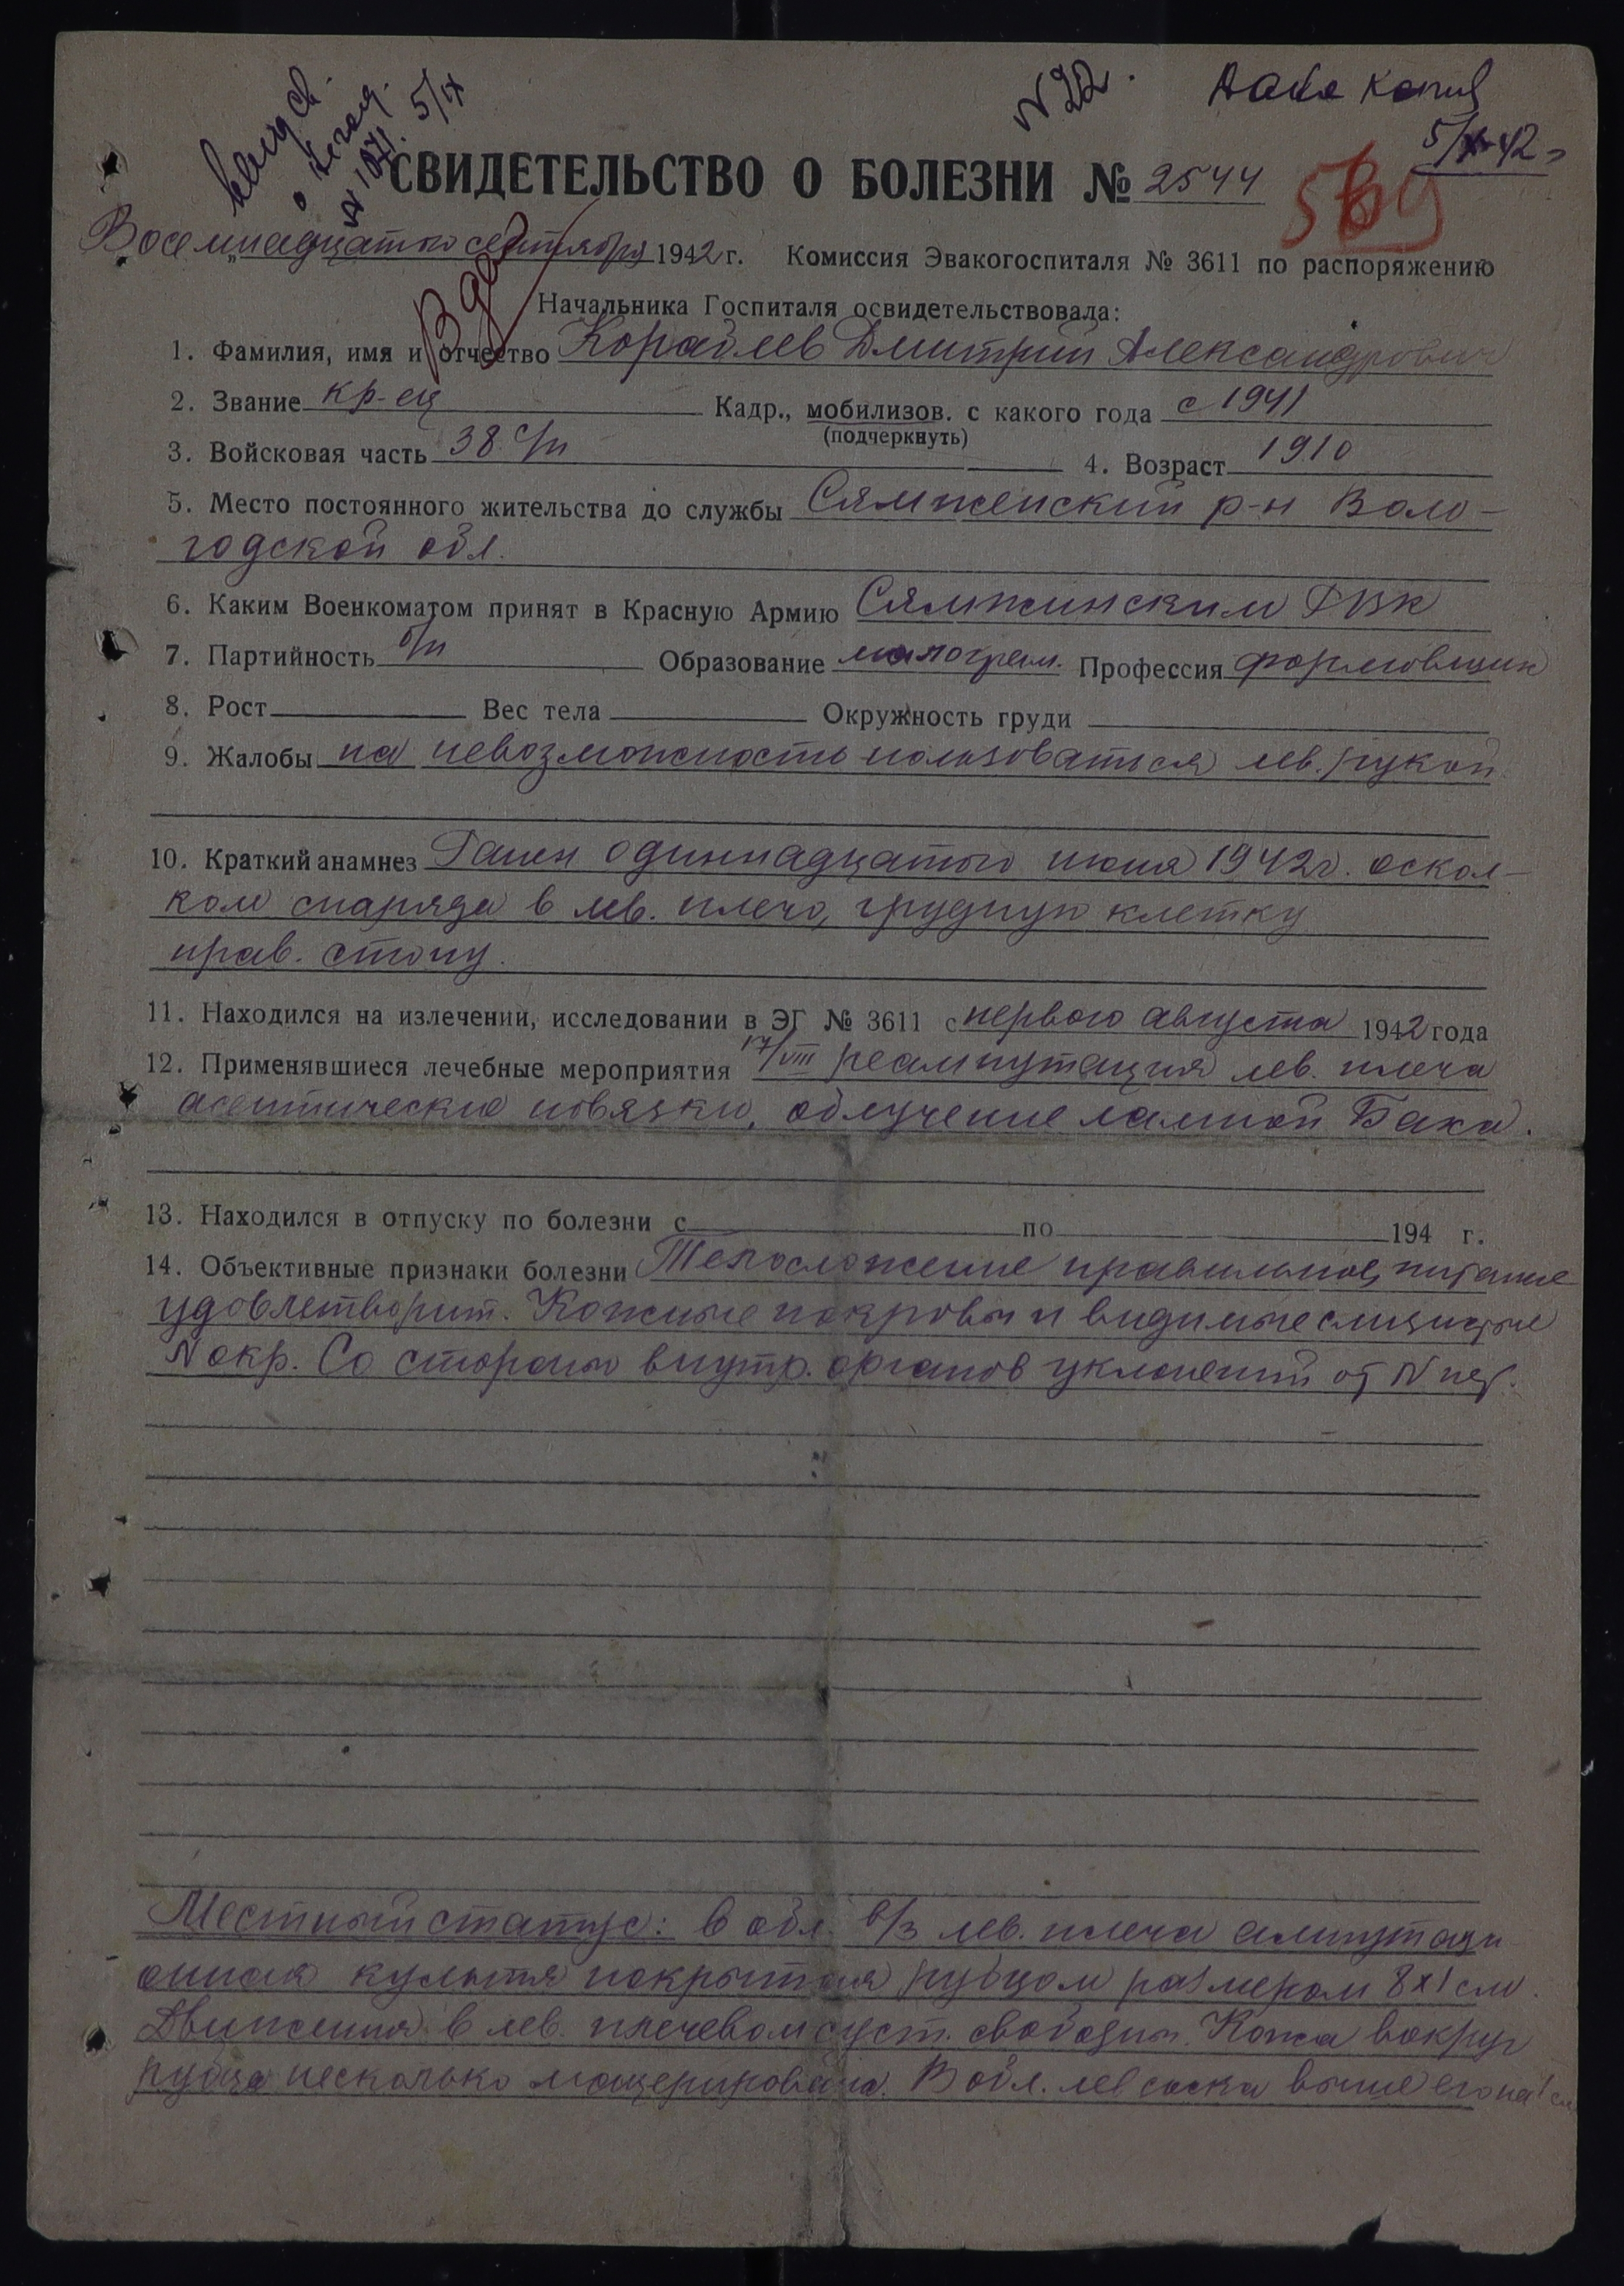 N 22.
5/X-42 г
№ 1071. 5/IX
СВИДЕТЕЛЬСТВО О БОЛЕЗНИ № 2544
569
Восемнадцатого сентября 1942 г. Комиссия Эвакогоспиталя № 3611 по распоряжению
Начальника Госпиталя освидетельствовала:
1. Фамилия, имя и отчество Кораблев Дмитрий Александрович
2. Звание кр-ец Кадр., мобилизов. с какого года с 1941
(подчеркнуть)
3. Войсковая часть 38 с/п 4. Возраст 1910
5. Место постоянного жительства до службы Сямженский р-н Воло-
годской обл.
6. Каким Военкоматом принят в Красную Армию Сямжинским РВК
7. Партийность б/п Образование малограм. Профессия формовщик
8. Рост Вес тела Окружность груди
9. Жалобы на невозможность пользоваться лев. рукой
10. Краткий анамнез Ранен одиннадцатого июня 1942г. оскол-
ком снаряда в лев. плечо, грудную клетку
прав. стопу.
11. Находился на излечении, исследовании в ЭГ № 3611 с первого августа 1942 года
12. Применявшиеся лечебные мероприятия 17/VIII реампутация лев. плеча
асептические повязки, облучение лампой Баха.
13. Находился в отпуску по болезни с по 194 г.
14. Объективные признаки болезни Телосложение правильное, питание
удовлетворит. Кожные покровы и видимые слизистые
N окр. Со стороны внутр. органов уклонений от N нет.
Местный статус: в обл. в/3 лев. плеча ампутаци
онная культя покрытая рубцом размером 8х1 см.
Движения в лев. плечевом суст. свободны. Кожа вокруг
рубца несколько мацерирована. В обл. лев соска выше его на 1 см